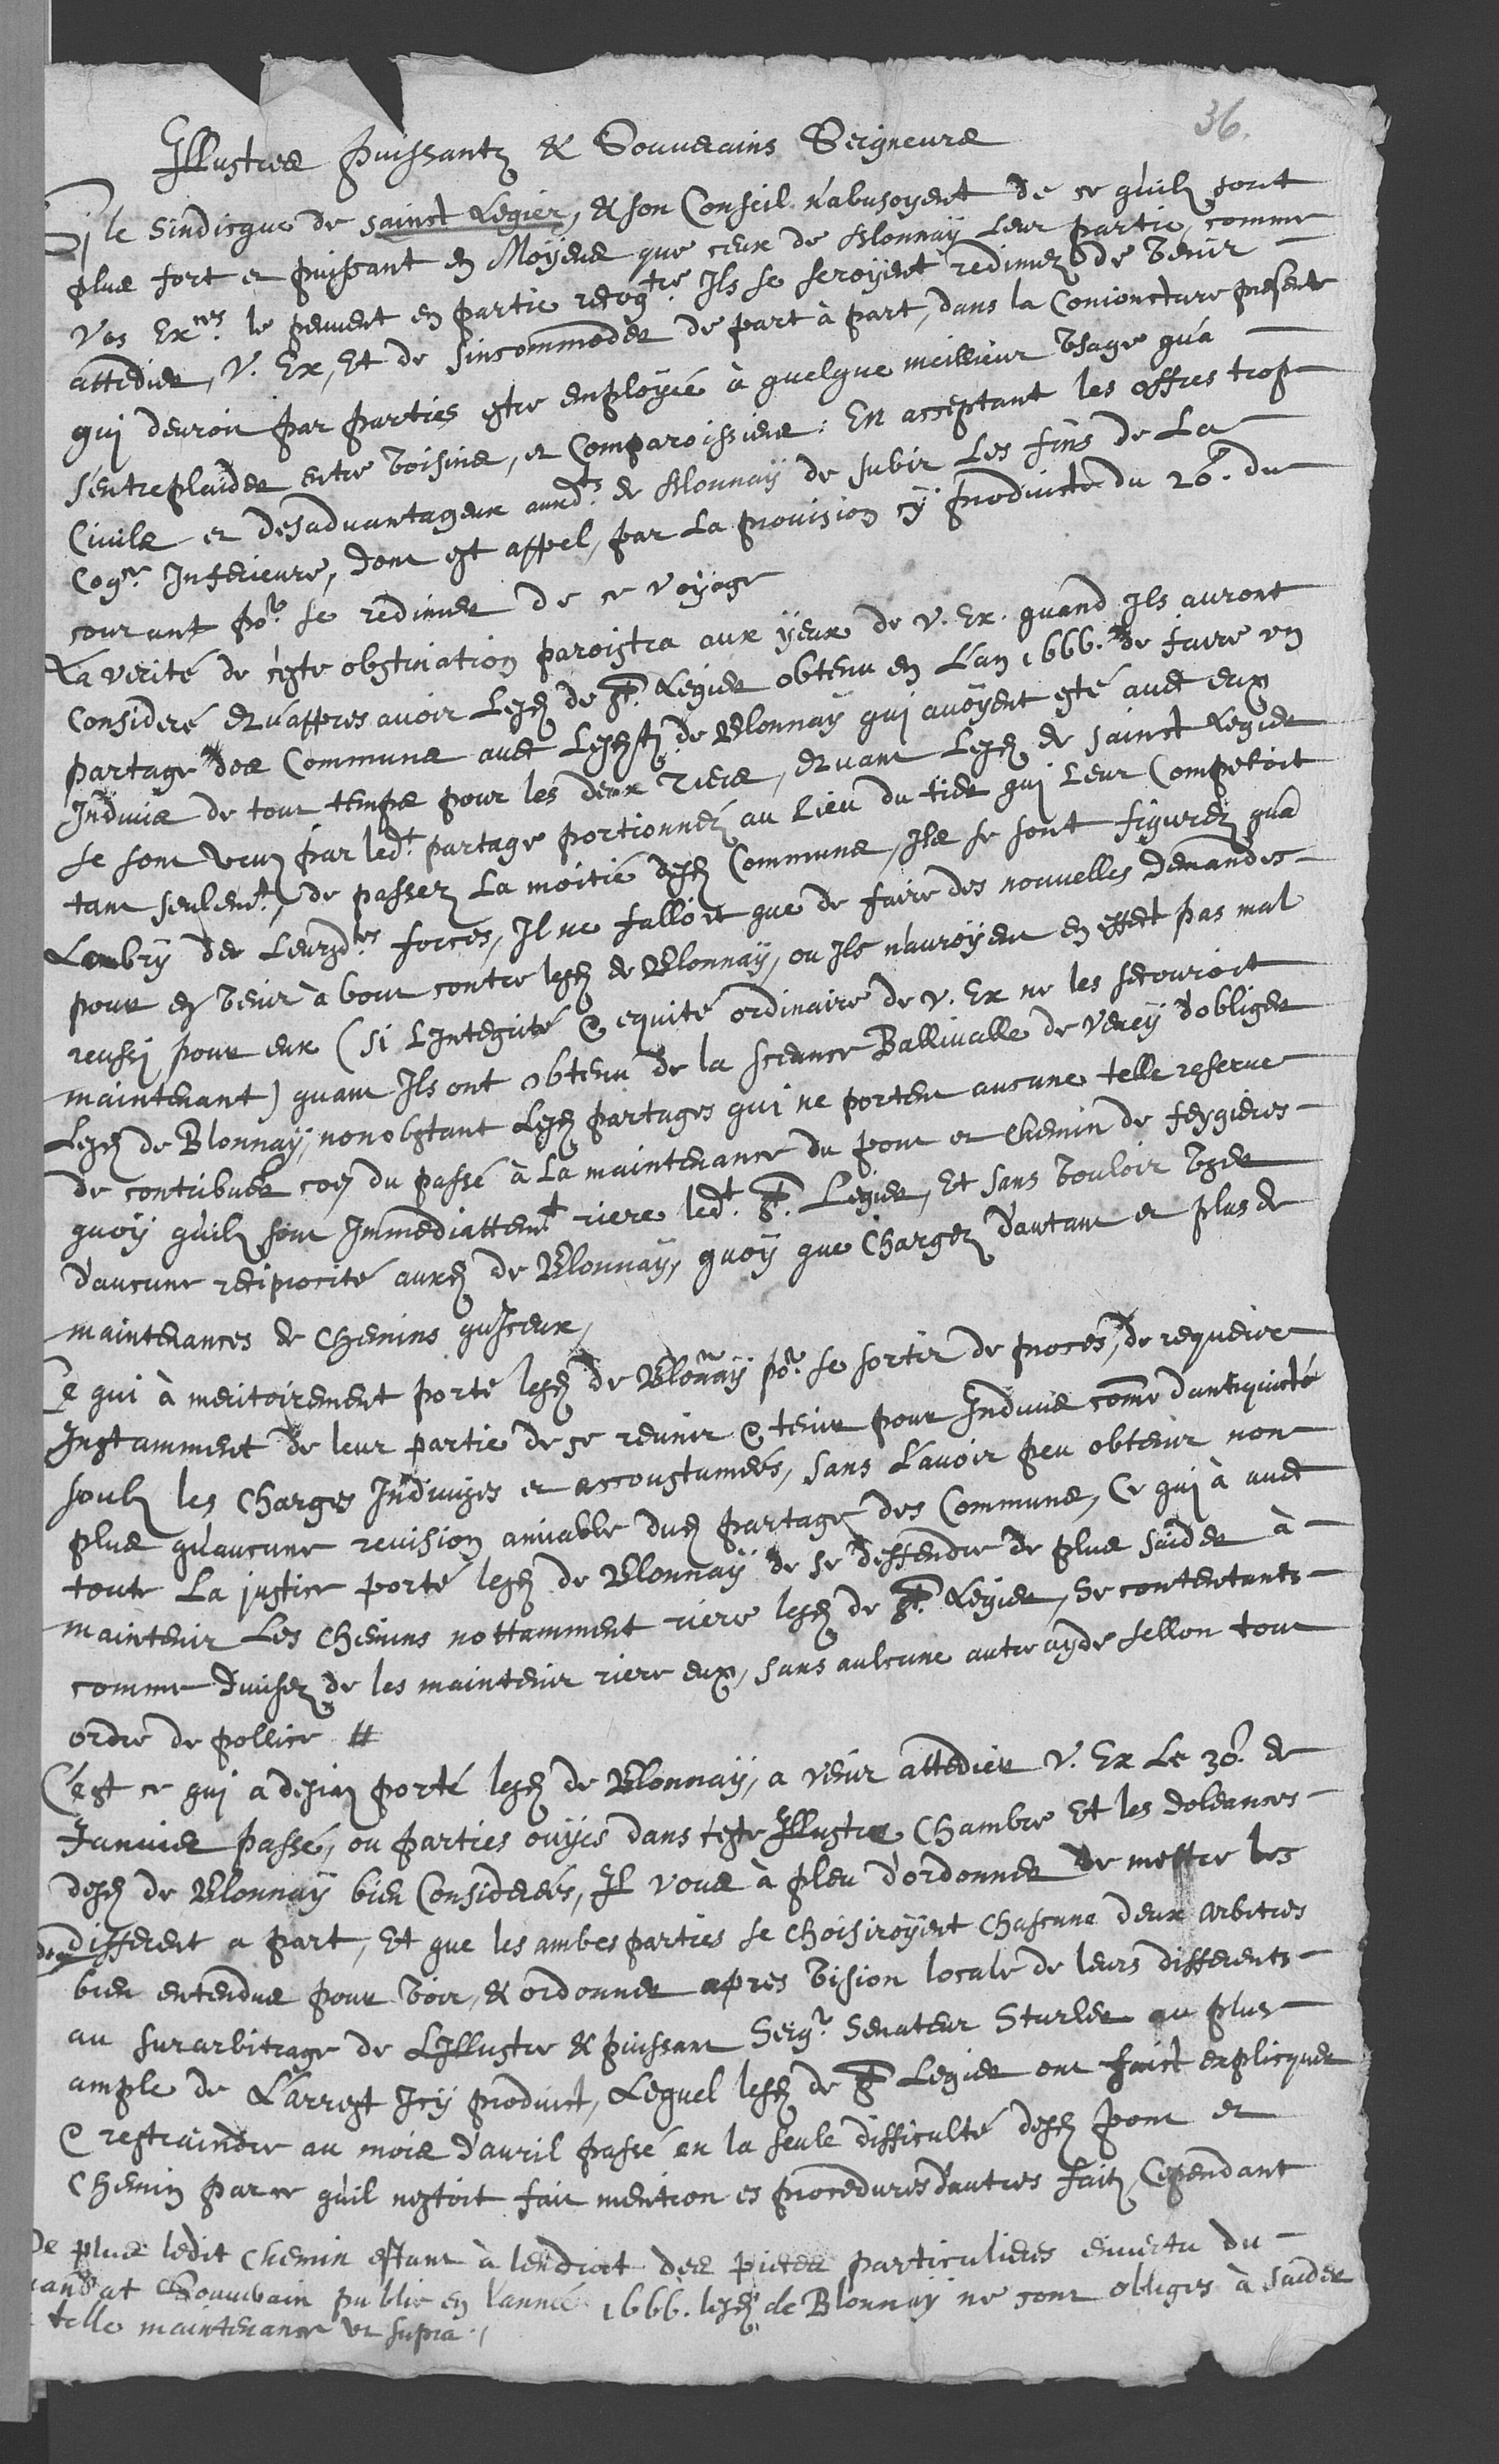 36.
Illustres Puissantz & Souverains Seigneurs
Si le Sindicque de sainct Legier, & son Conseil n'abusoyent de ce qu'ilz sont
plus fort et puissant en Moyens que ceux de Blonnay Leur partie, comme
Vos Ex.ces le peuvent en partie recog.tre Ils se seroyent redimez de venir
attedier, V. Ex, Et de sincommoder de part à part, dans la Conioncture presente
qui devroit par parties estre employée à quelque meillieur usage qu'a
s'entreplaider entre voisins, et Comparoissiens: En acceptant les offres trop
Civils et desadvantageux auxd.ts de Blonnay de subir Les fins de La
Cog.ce Inferieure, dont est appel, par La provision cy produicte du 20.e du
courant po.r se redimer de ce voyage
La verité de ceste obstination paroistra aux yeux de V. Ex. quand Ils auront
Consideré qu'appres avoir Lesd. de St. Legier obtenu en L'an 1666. de faire un
partage des Communs avec Lesd. de Blonnay qui avoyent esté avec eux
Indivis de tout temps pour les deux Tiers, et vant Lesd. de sainct Legier
se sont veuz par led.t partage portionnéz au Lieu du tier qui Leur Competoit
tant seulem.t, de passez La moitié desd. Communs, Ils se sont figurez qu'a
L'abry de Leursd.tes forces, Il ne falloit que de faire des nouvelles demandes
pour en venir à bout contre lesd. de Blonnay, ou Ils n'auroyent en effect pas mal
reussi pour eux (si L'Integrité & equité ordinaire de V. Ex ne les secouroit
maintenant) quant Ils ont obtenu de la sceance Ballivalle de Vevey d'obliger
Lesd. de Blonnay, nonobstant Lesd. partages qui ne portent aucune telle reserve
de contribuer coe du passé à La maintenance du pont et chemin de feygieres
quoy qu'ilz sont Immediattem.t riere led.t St. Legier, Et sans vouloir user
d'aucune reciprocité auxd. de Blonnay, quoy que Chargez d'autant et plus de
maintenances de Chemins qu'Iceux,
Ce qui à meritoirement porté lesd. de Blonay po.r se sortir de proces, de requerir
Instamment de leur partie de se reunir & tenir pour Indivis come d'antiquité
soubz les Charges Indivises et accoustumées, sans L'avoir peu obtenir non
plus qu'aucune revision amiable dud. partage des Communs, Ce qui à avec
toute La justice porté lesd. de Blonnay de se deffendre de plus s'aider à
maintenir Les Chemins nottamment riere lesd. de St. Legier, se contentants
comme divisez de les maintenir riere eux, sans aulcune autre ayde sellon tout
ordre de pollice #
C'est ce qui a desjaz porté lesd. de Blonnay, a venir attedier V. Ex Le 30.e de
Janvier passé, ou parties ouyes dans ceste Illustre Chambre Et les doleances
desd. de Blonnay bien Considerées, Il vous à pleu d'ordonner de mettre les
different a part, Et que les ambes parties se choisiroyent Chascune deux arbitres
bien entendus pour voir, & ordonner apres vision locale de leurs differents
au surarbitrage de L'Illustre & puissant Seig.r Senateur Sturler au plus
ample de L'arrest Icy produict, Lequel lesd. de St Legier ont faict explicquer
& restraindre au mois d'avril passé en la seule difficulté desd. pont et
Chemin par ce qu'il nestoit fait mention es procedures d'autres faitz, Cependant
De plus ledit chemin estant à lendroit des pieces particulieres en vertu du
mandat Souverain publie en l'année 1666. lesd. de Blonnay ne sont obliges à saider
telle maintenance ut supra./